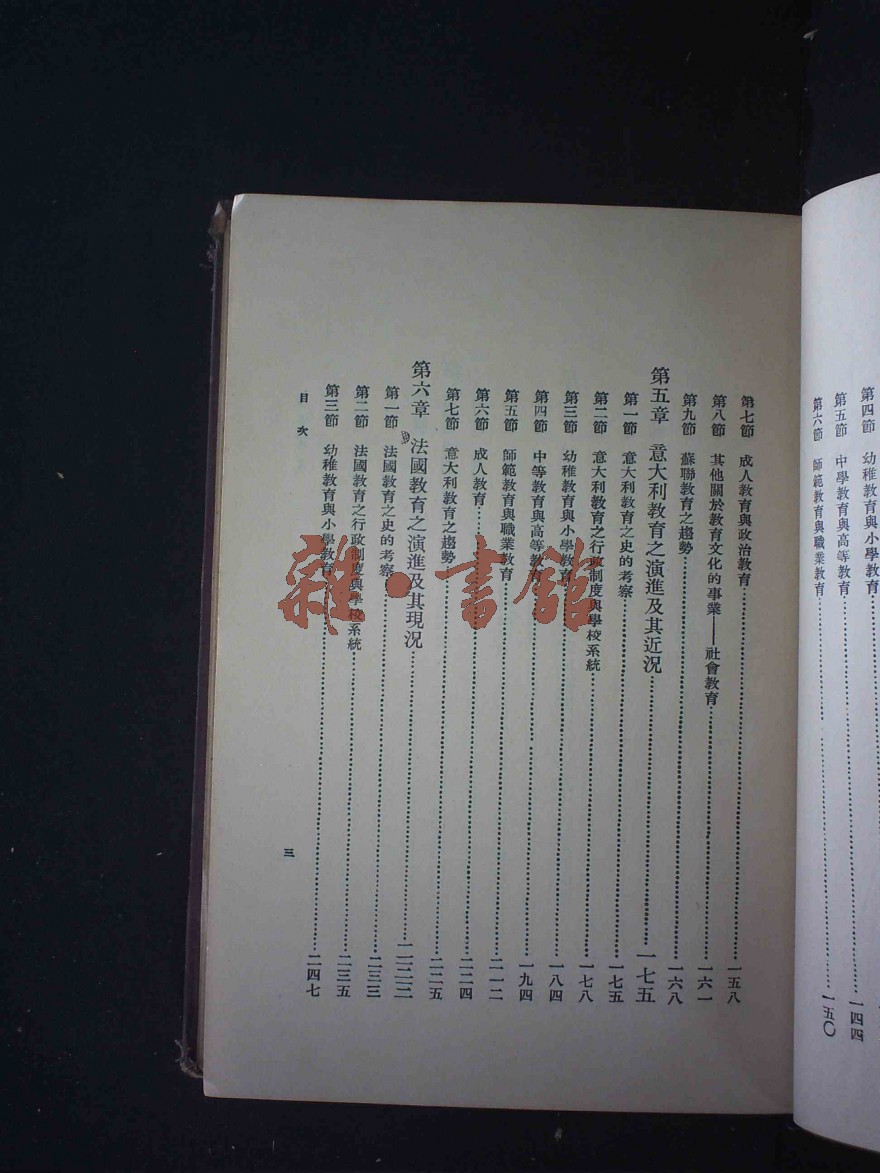 第四節　幼稚教育與小學教育
第五節　中學教育與高等教育……一四四
第六節　師範教育與職業教育……一五〇
第七節　成人教育與政治教育……一五八
第八節　其他關於教育文化的事業——社會教育……一六一
第九節　蘇聯教育之趨勢……一六八
第五章　意大利教育之演進及其近況……一七五
第一節　意大利教育之史的考察……一七五
第二節　意大利教育之行政制度與學校系統……一七八
第三節　幼稚教育與小學教育……一八四
第四節　中等教育與高等教育……一九四
第五節　師範教育與職業教育……二一二
第六節　成人教育……二二四
第七節　意大利教育之趨勢……二二五
第六章　法國教育之演進及其現況……二三三
第一節　法國教育之史的考察……二三三
第二節　法國教育之行政制度與學校系統……二三五
第三節　幼稚教育與小學教育……二四七
目次
三
雜·書館